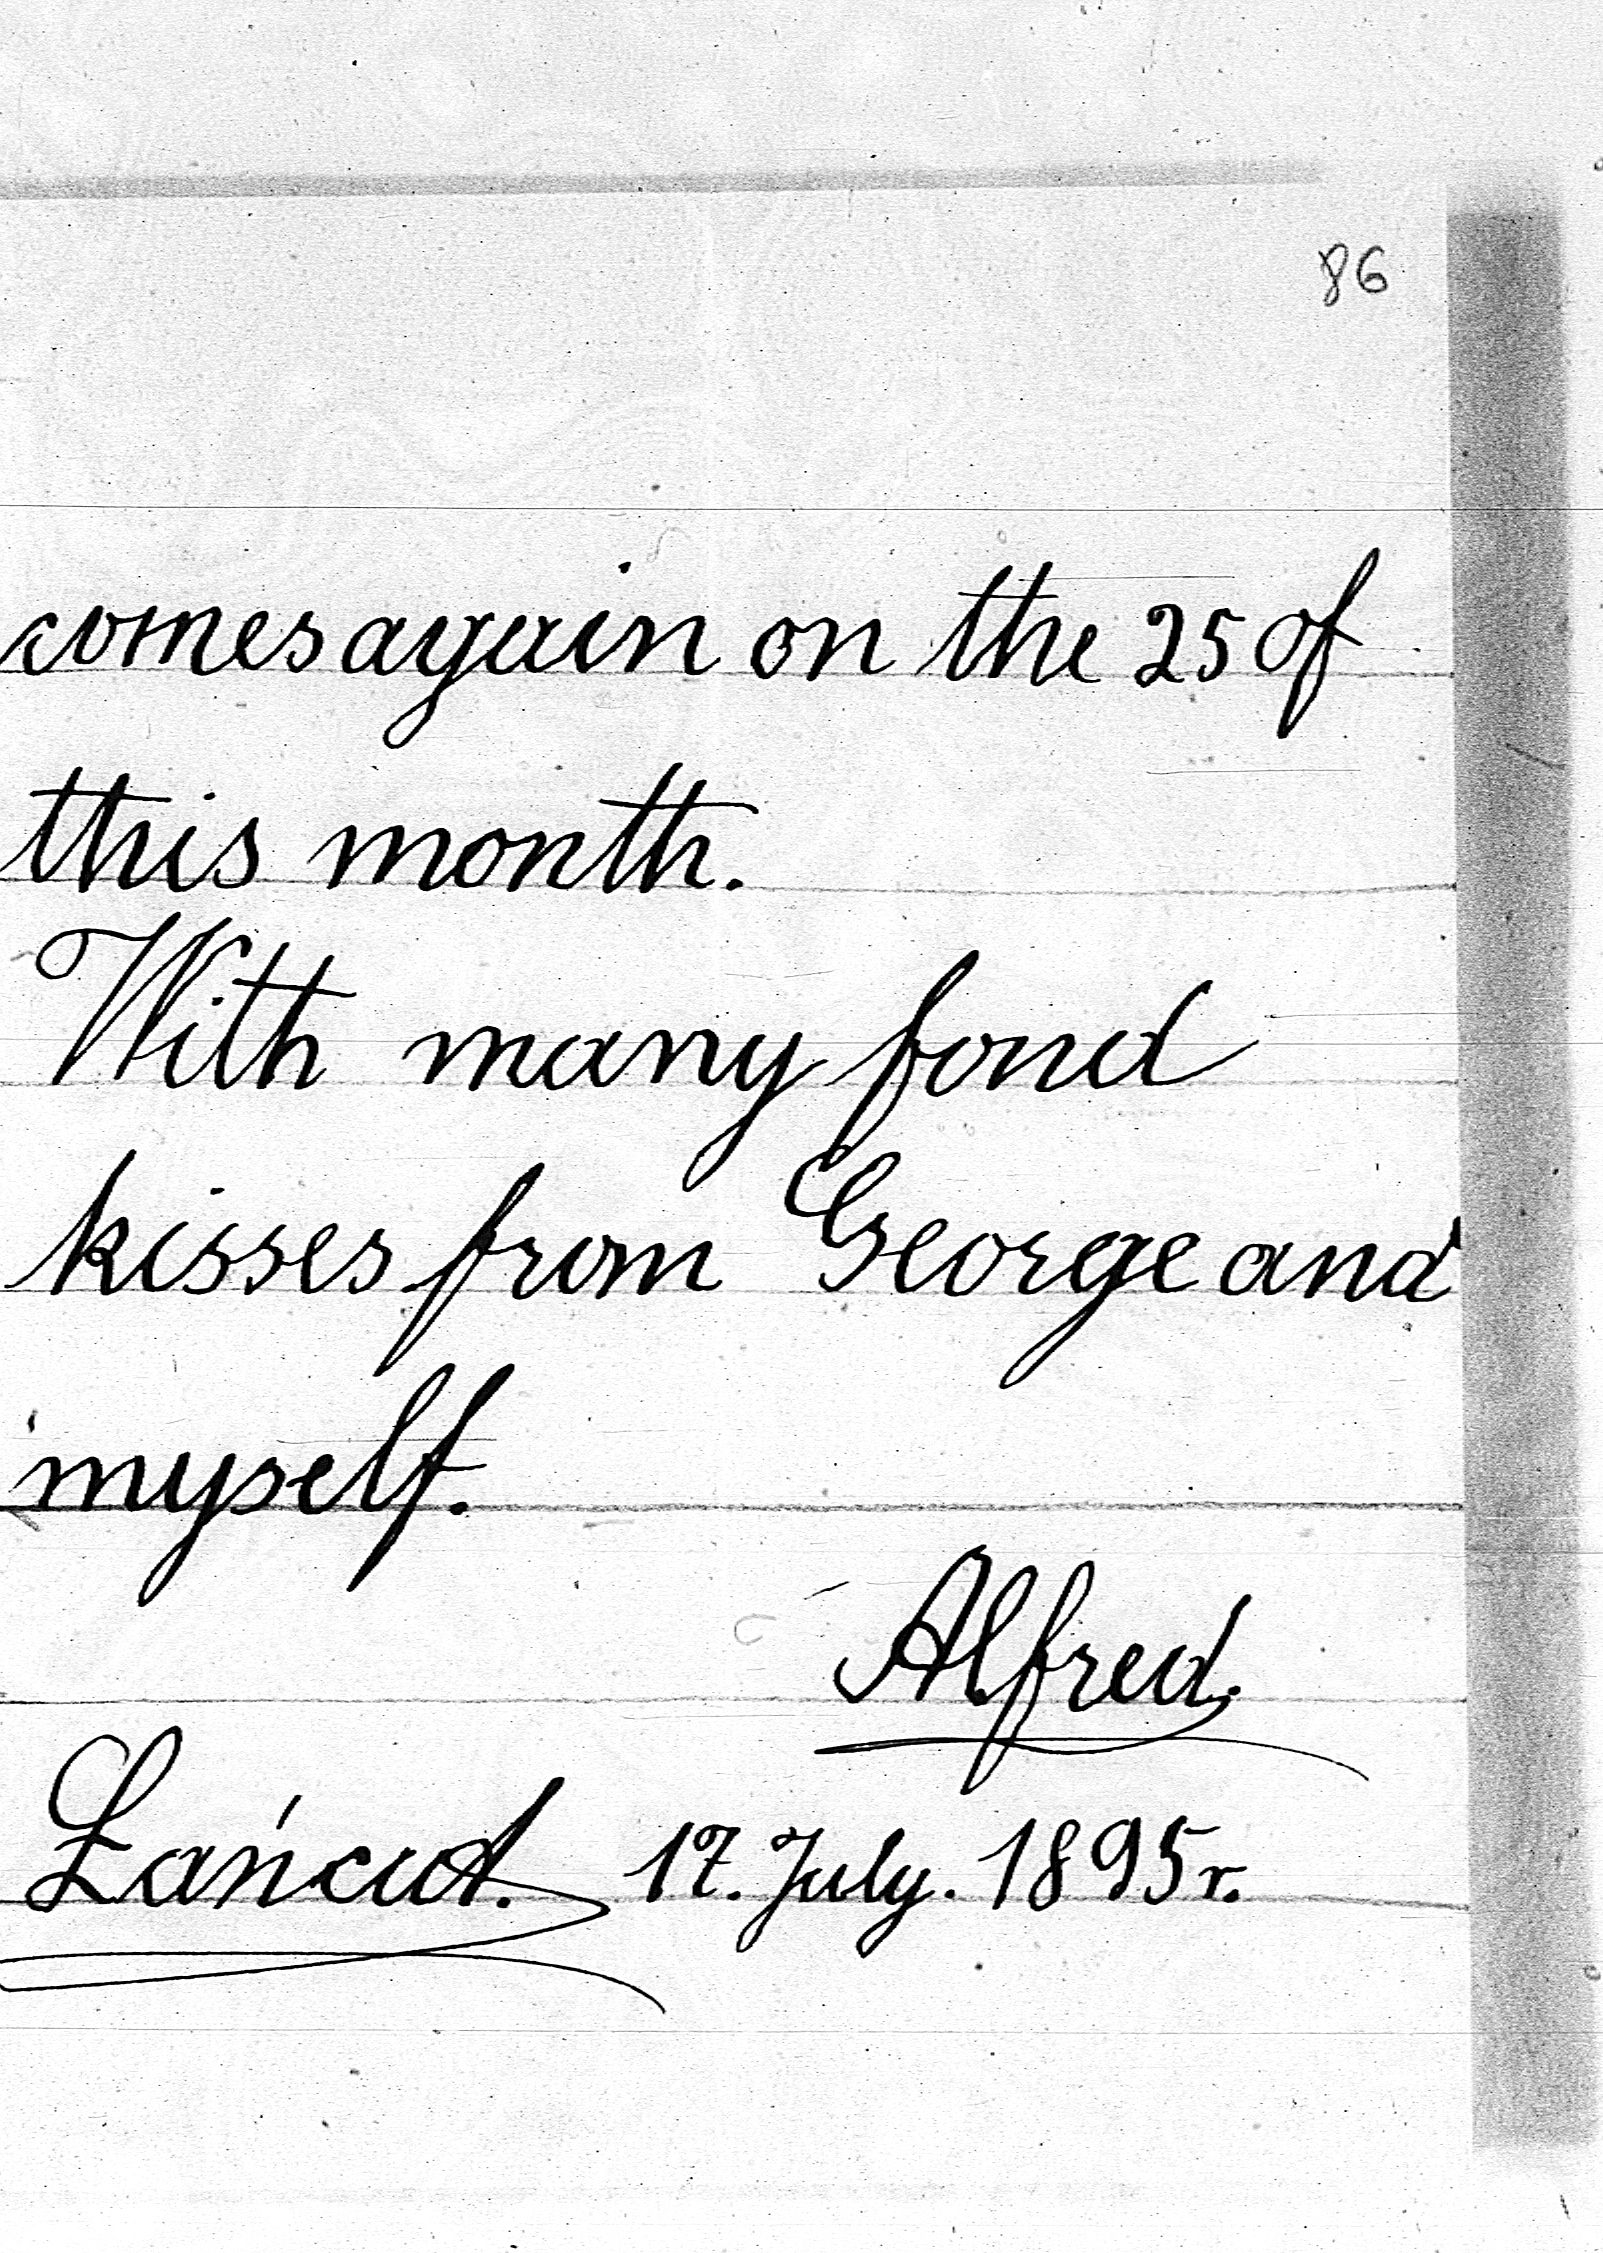 86
comes again on the 25 of
this month.
With many fond
kisses from George and
myself.
Alfred.
Łańcut. 17. July. 1895 r.